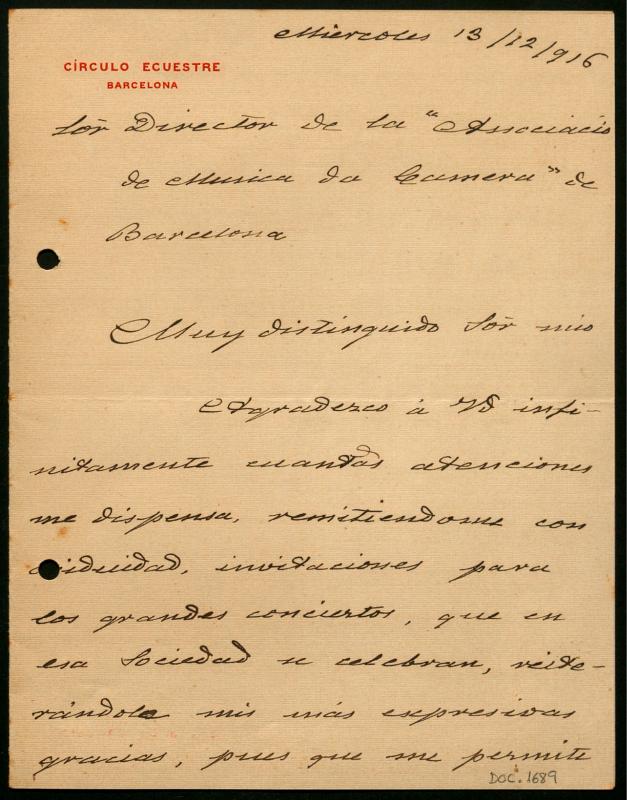 Miercoles 13/12/916
CÍRCULO ECUESTRE
BARCELONA
Sór Director de la "Associació
de Musica da Camera" de
Barcelona
Muy distinguido Sór mio
Agradezco á Vd infi-
nitamente cuantas atenciones
me dispensa, remitiendome con
asiduidad, invitaciones para
los grandes conciertos, que en
esa Sociedad se celebran, reite-
rándole mis más expresivas
gracias, pues que me permite
DOC. 1689